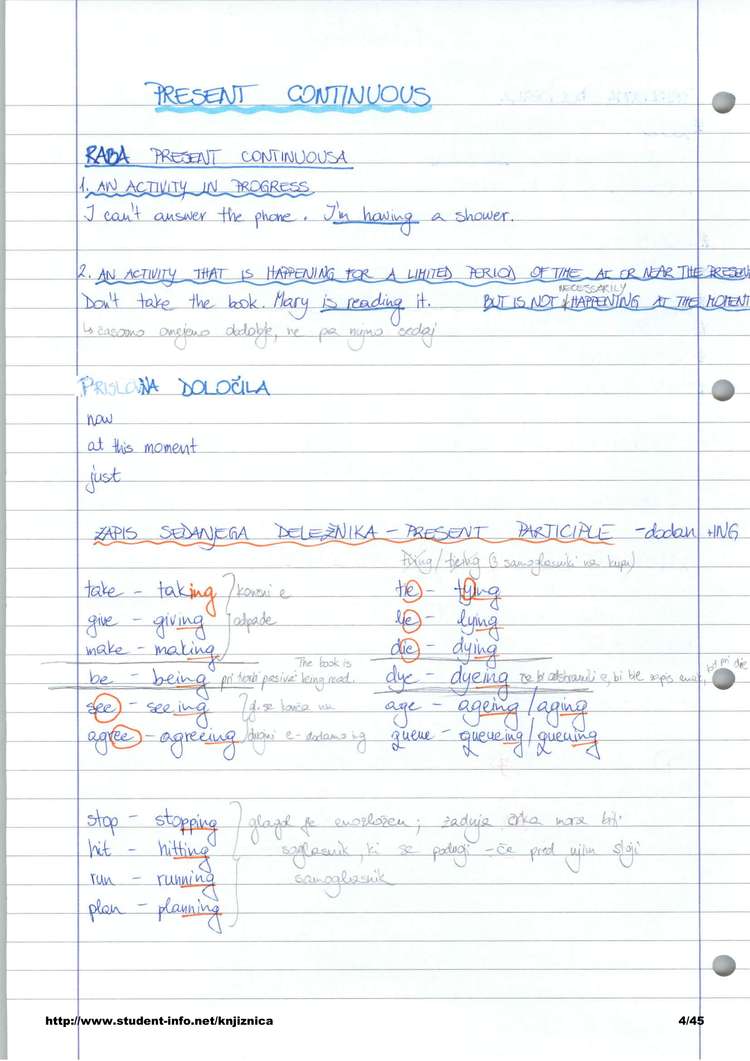 PRESENT CONTINUOUS
RABA PRESENT CONTINUOUSA
1. AN ACTIVITY IN PROGRESS
I can't answer the phone. I'm having a shower.
2. AN ACTIVITY THAT IS HAPPENING FOR A LIMITED PERIOD OF TIME AT OR NEAR THE PRESEN
NECESSARILY
Don't take the book. Mary is reading it. BUT IS NOT HAPPENING AT THE MOMENT
↳ časovno omejeno obdobje, ne pa nujno sedaj
PRISLOVNA DOLOČILA
now
at this moment
just
ZAPIS SEDANJEGA DELEŽNIKA - PRESENT PARTICIPLE - dodan +ING
(3 samoglasniki na kupu)
take - taking konsni e tie - tying
give - giving odpade lie - lying
make - making die - dying
The book is
be - being pri tvorbi pasiva being read. dye - dyeing če bi odstranili e, bi bil zapis enak, kot pri die
see - seeing gl. se konča na age - ageing/aging
agree - agreeing dolgi e - dodamo ing queue - queueing/queuing
stop - stopping glagol je enozložen; zadnja črka mora biti
hit - hitting soglasnik, ki se podvoji - če pred njim stoji
run - running samoglasnik
plan - planning
http://www.student-info.net/knjiznica 4/45